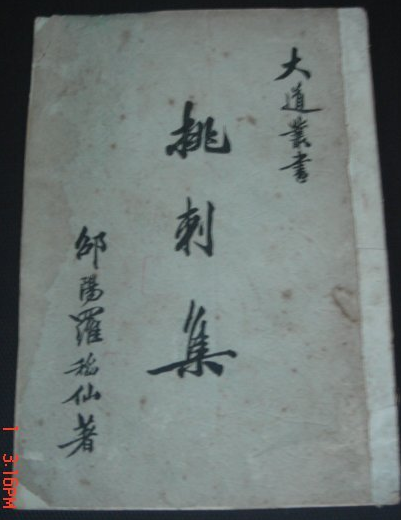 大道叢書
挑刺集
邵陽羅稚仙著
1 3:10PM